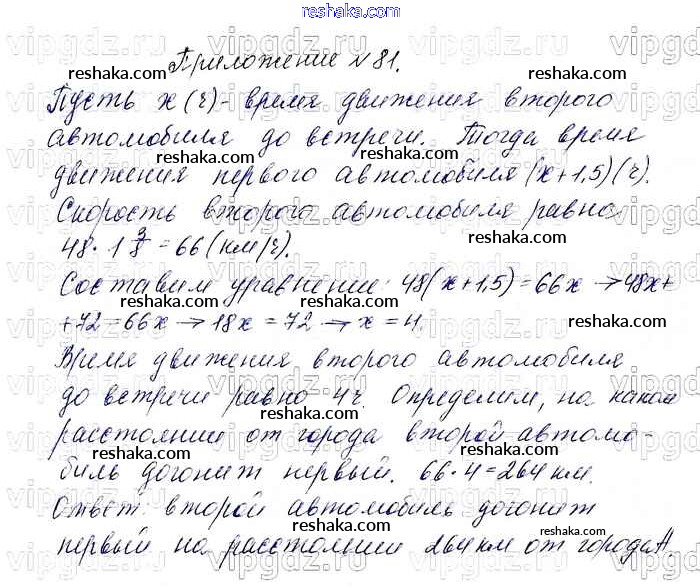 reshaka.com
Приложение № 81.
reshaka.com
Пусть x (ч) - время движения второго
автомобиля до встречи. Тогда время
reshaka.com
движения первого автомобиля (x+1,5) (ч).
Скорость второго автомобиля равна
reshaka.com
48 · 1 3/8 = 66 (км/ч).
Составим уравнение: 48(x+1,5) = 66x → 48x+
reshaka.com
+72 = 66x → 18x = 72 → x = 4.
reshaka.com
Время движения второго автомобиля
reshaka.com
до встречи равно 4ч. Определим, на каком
reshaka.com
расстоянии от города второй автомо-
reshaka.com
биль догонит первый. 66 · 4 = 264 км.
reshaka.com
Ответ: второй автомобиль догонит
reshaka.com
первый на расстоянии 264 км от города А.
reshaka.com